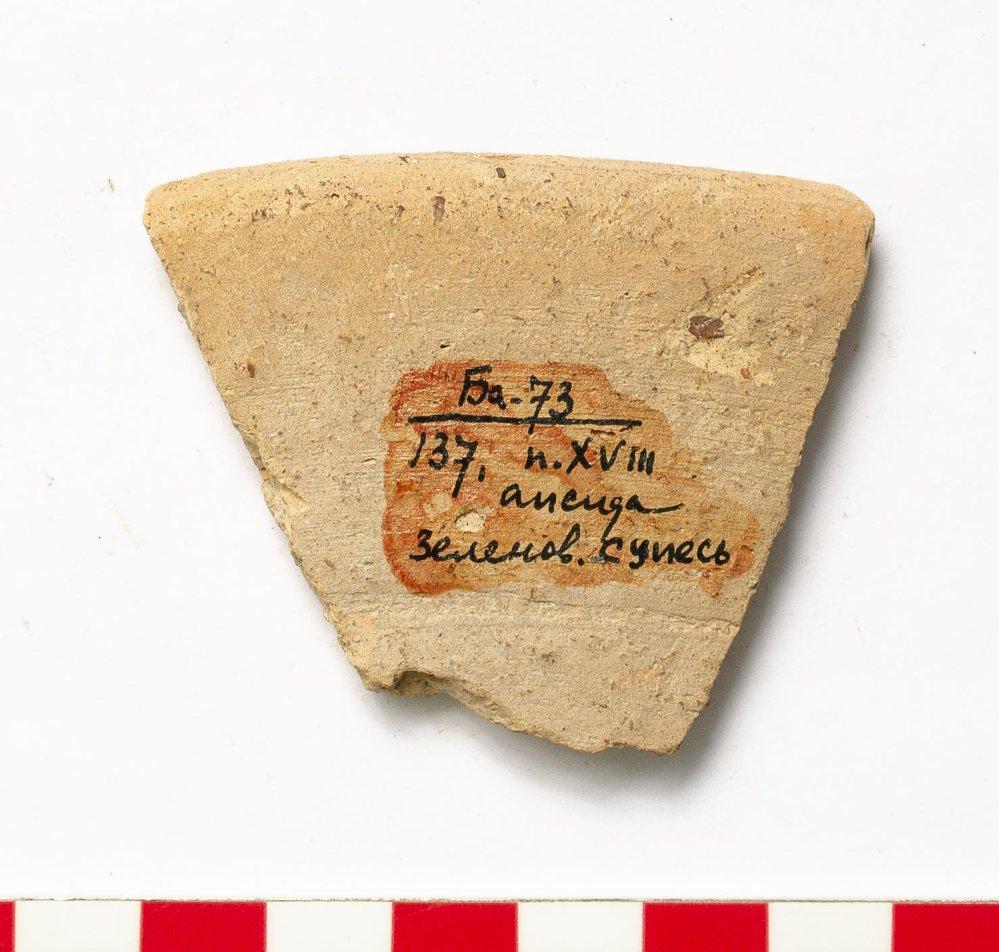 Ба-73
137, п. XVIII
апсида
зеленов. супесь